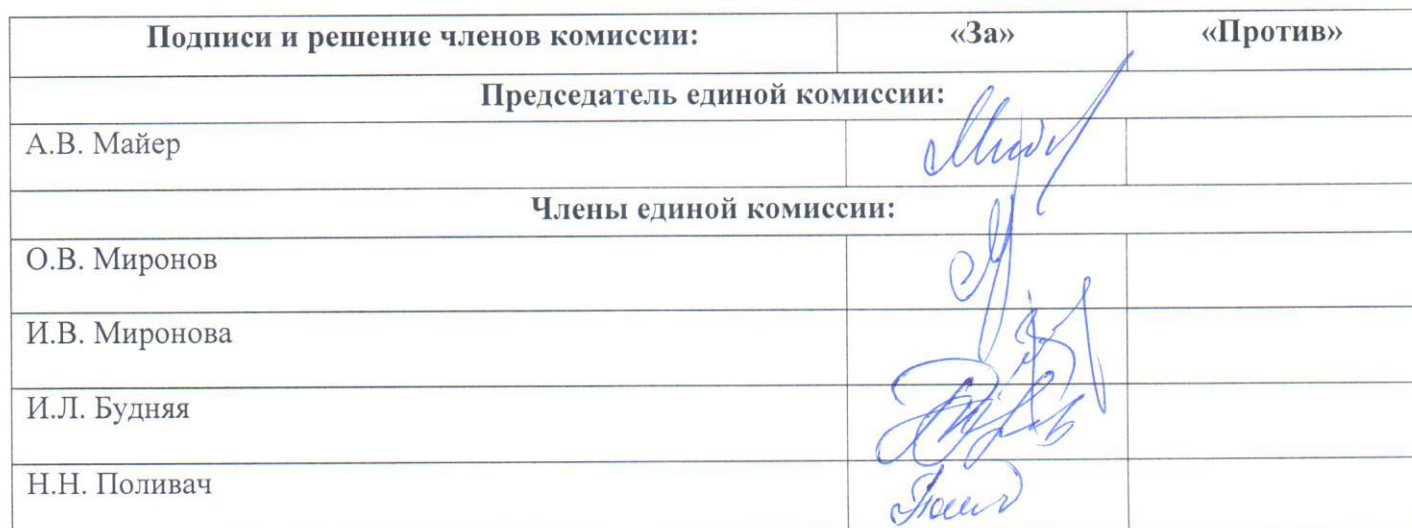 Подписи и решение членов комиссии: «За» «Против»
Председатель единой комиссии:
А.В. Майер
Члены единой комиссии:
О.В. Миронов
И.В. Миронова
И.Л. Будняя
Н.Н. Поливач